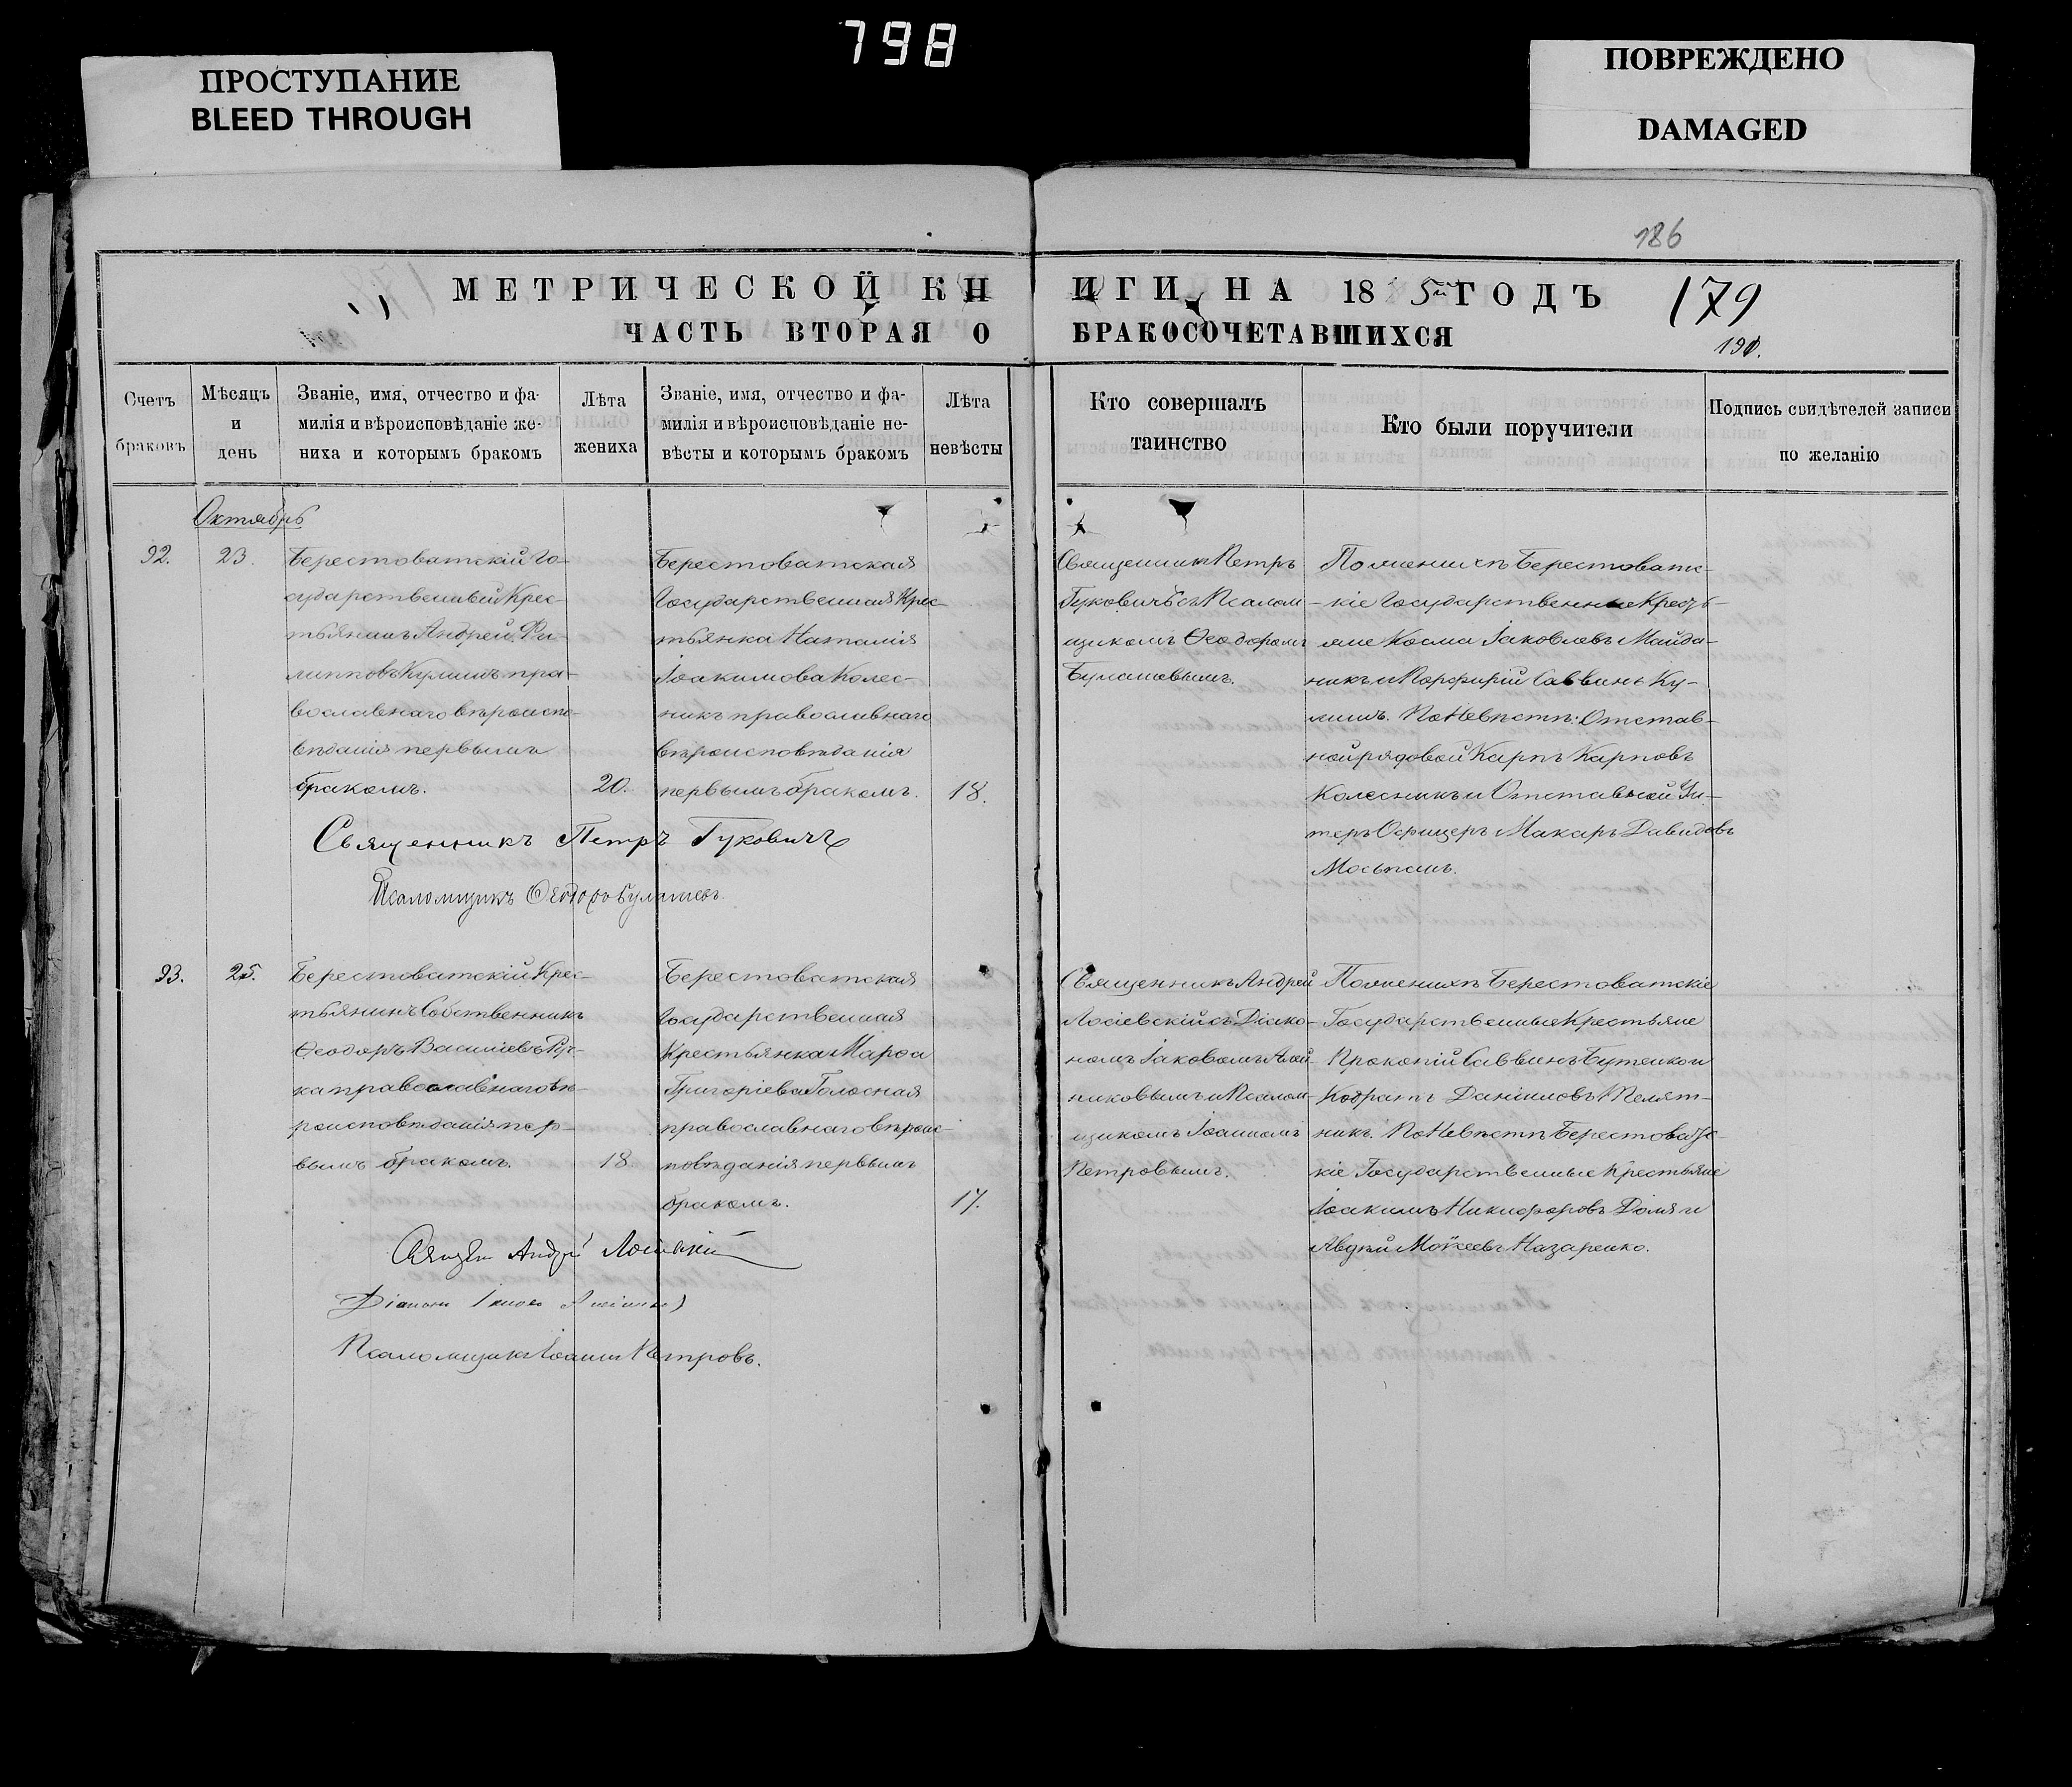 798
ПРОСТУПАНИЕ
BLEED THROUGH
ПОВРЕЖДЕНО
DAMAGED
186
МЕТРИЧЕСКОЙ КН
ИГИ НА 18 5й ГОДЪ
179
ЧАСТЬ ВТОРАЯ О
БРАКОСОЧЕТАВШИХСЯ
190.
Счетъ
браковъ
Мѣсяцъ
и
день
Званіе, имя, отчество и фа-
милія и вѣроисповѣданіе же-
ниха и которымъ бракомъ
Лѣта
жениха
Званіе, имя, отчество и фа-
милія и вѣроисповѣданіе не-
вѣсты и которымъ бракомъ
Лѣта
невѣсты
Кто совершалъ
таинство
Кто были поручители
Подпись свидѣтелей записи
по желанію
Октябрь
92.
23.
Берестоватскій Го-
сударственный Крес-
тьянинъ Андрей Фи-
липповъ Кулишъ пра-
вославнаго вѣроиспо-
вѣданія первымъ
бракомъ.
20.
Берестоватская
Государственная Крес-
тьянка Наталія
Іоакимова Колес-
никъ православнаго
вѣроисповѣданія
первымъ бракомъ.
18.
Священникъ Петръ
Гуковичъ съ Псалом-
щикомъ Ѳеодоромъ
Булашевымъ.
По женихѣ Берестоватс-
кіе Государственные Кресть-
яне Косма Іаковлевъ Майда-
никъ и Порфирій Саввинъ Ку-
лишъ. По Невѣстѣ: Отстав-
ной рядовой Карпъ Карповъ
Колесникъ и Отставной Ун-
теръ Офицеръ Макаръ Давидовъ
Моспанъ.
Священникъ Петръ Гуковичъ
Псаломщикъ Ѳеодоръ Булашевъ.
93.
25.
Берестоватскій Крес-
тьянинъ Собственникъ
Ѳеодоръ Василіевъ
ка православнаго вѣ-
роисповѣданія пер-
вымъ бракомъ.
18
Берестоватская
Государственная
Крестьянка Марѳа
Григоріева Голосная
православнаго вѣроис-
повѣданія первымъ
бракомъ.
17.
Священникъ Андрей
Лосіевскій съ Діако-
номъ Іаковомъ
никовымъ и Псалом-
щикомъ Іоанномъ
Петровымъ.
По женихѣ Берестоватскіе
Государственные Крестьяне
Прокопій Саввинъ Бутенко и
Кодратъ Даніиловъ Телят-
никъ. По Невѣстѣ Берестоватс-
кіе Государственные Крестьяне
Іоакимъ Никифоровъ Доля и
Авдѣй Моѵсеевъ Назаренко.
Андрей
Діаконъ Іаковъ
Псаломщикъ Іоаннъ Петровъ.